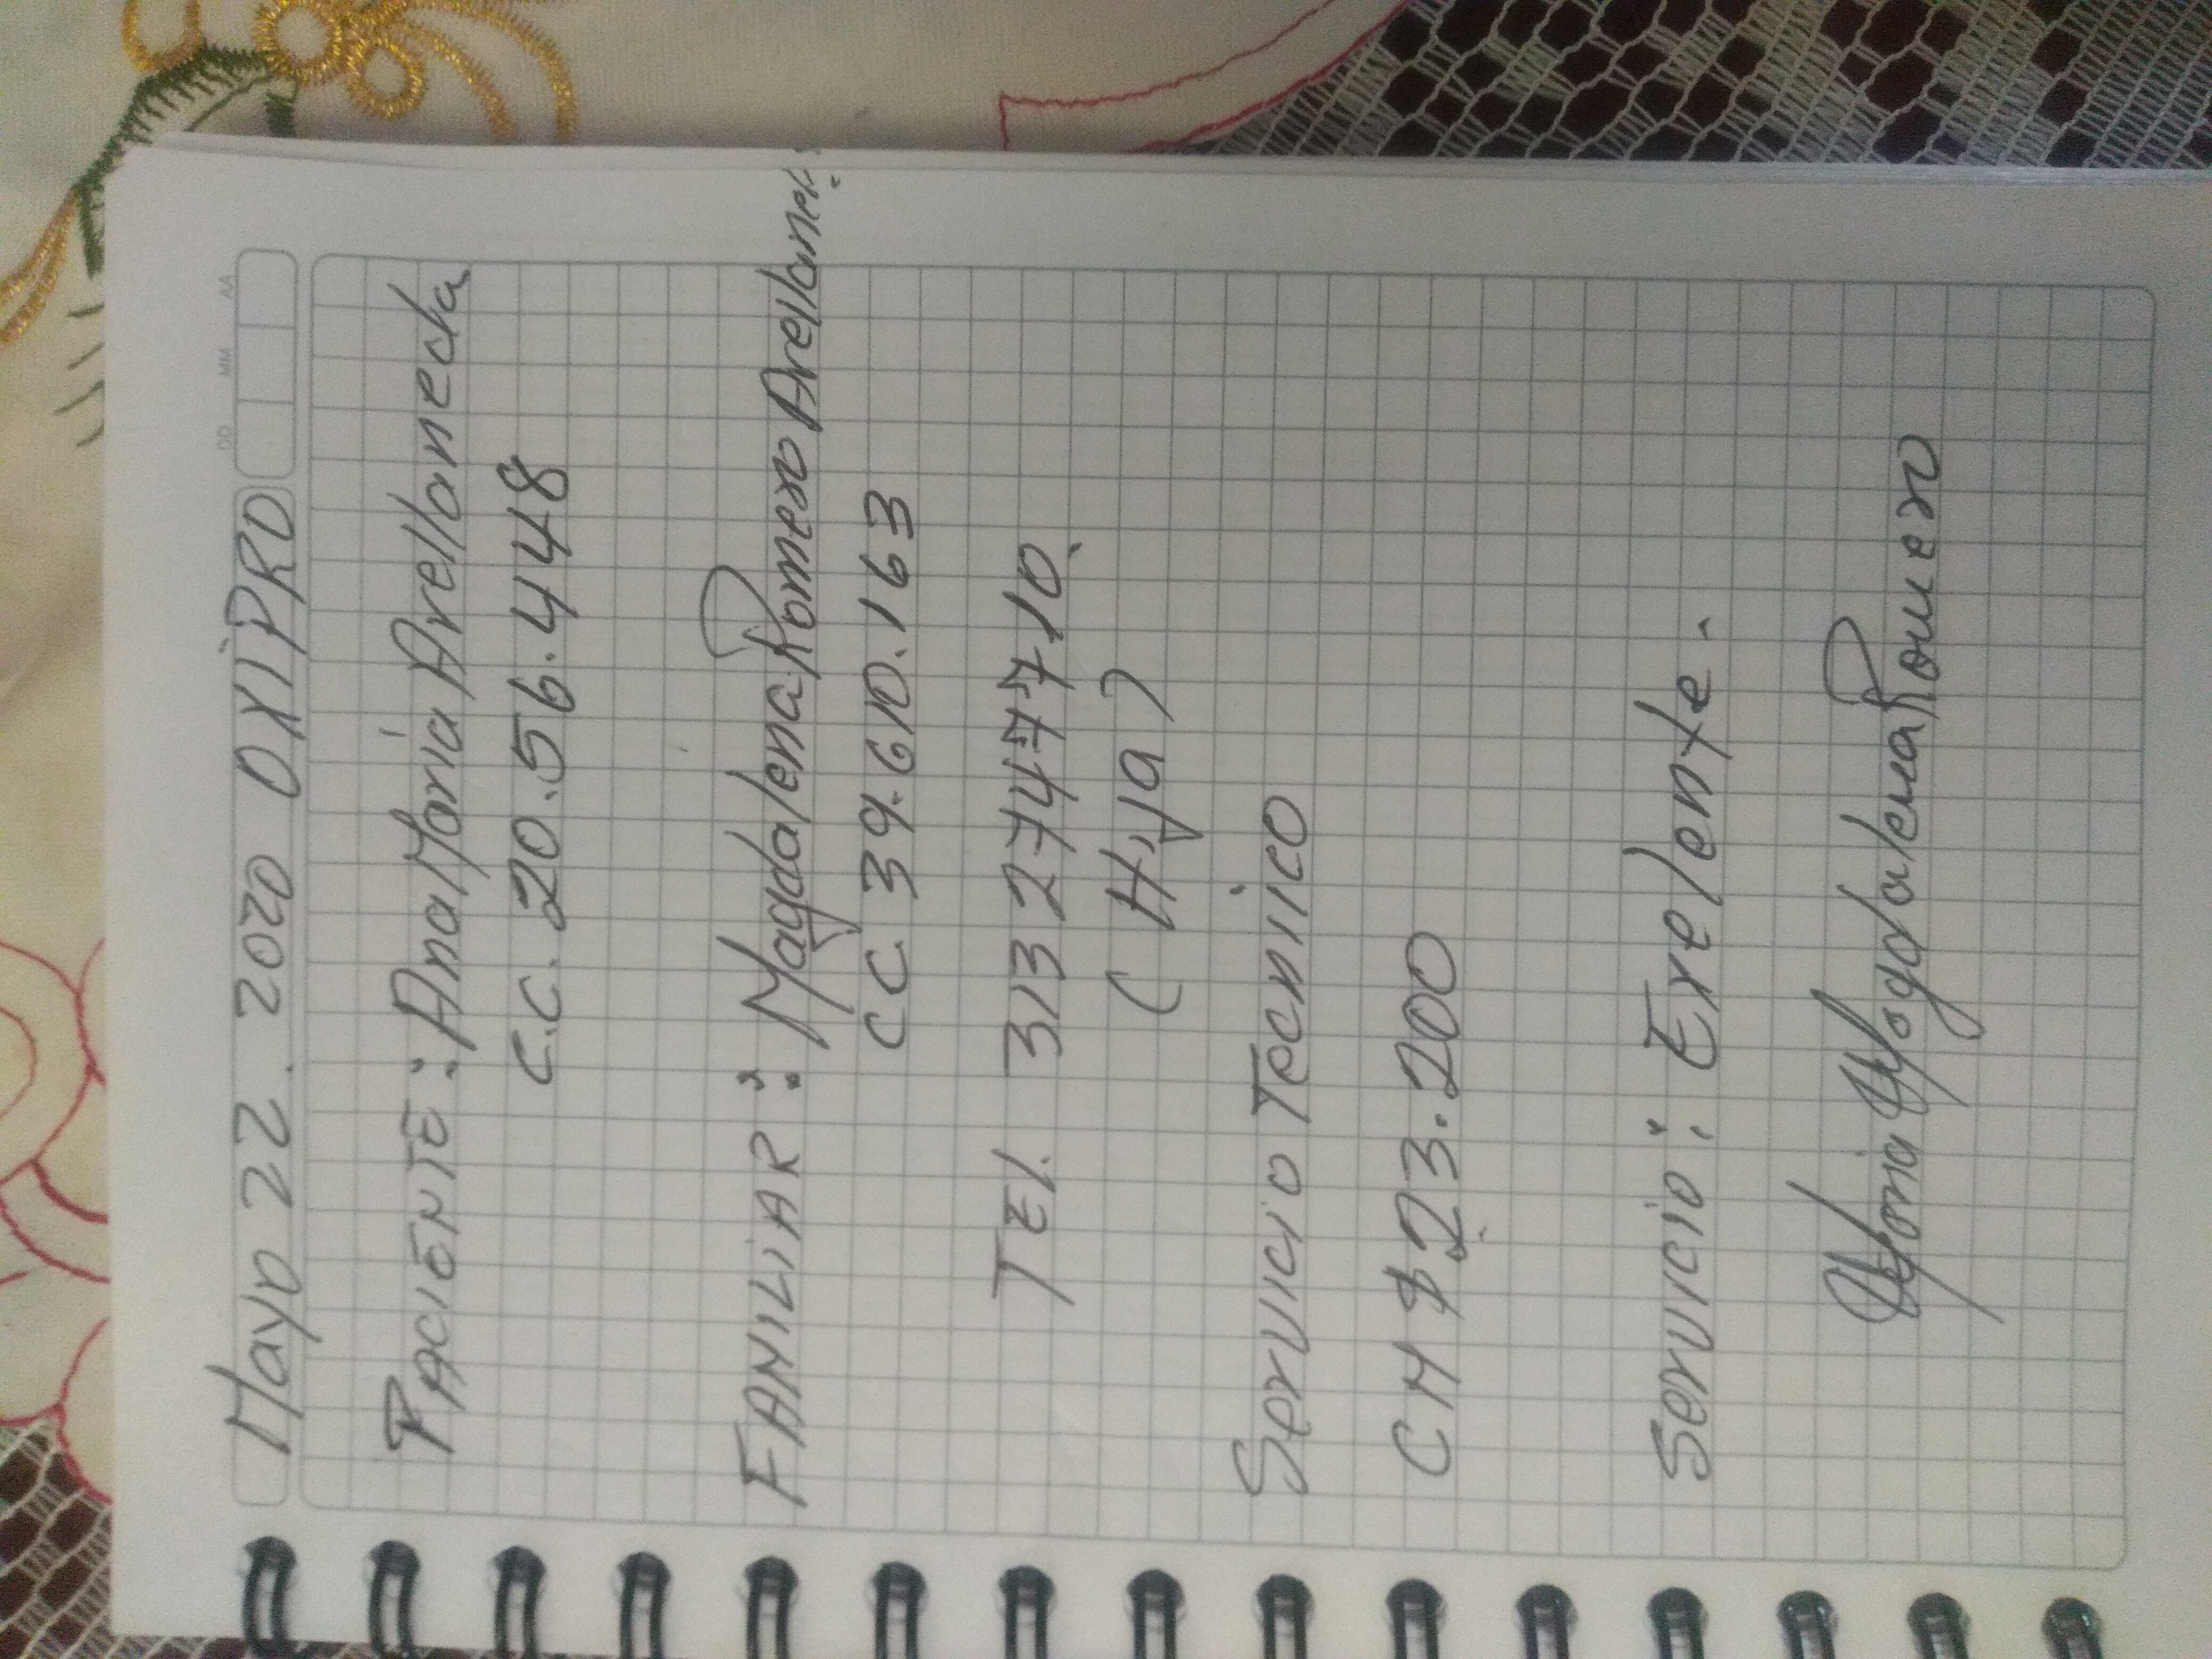 Mayo 22. 2020 OXIPRO
DD MM AA
PACIENTE: Ana Maria Arellaneda
C.C. 20.56.448
FAMILIAR: Magdalena Romero Arellaned.
CC 39.610.163
TEl. 313 2747710.
(Hija)
Servicio Tecnico
CM $23.200
Servicio: Exelente.
Maria Magdalena Romero